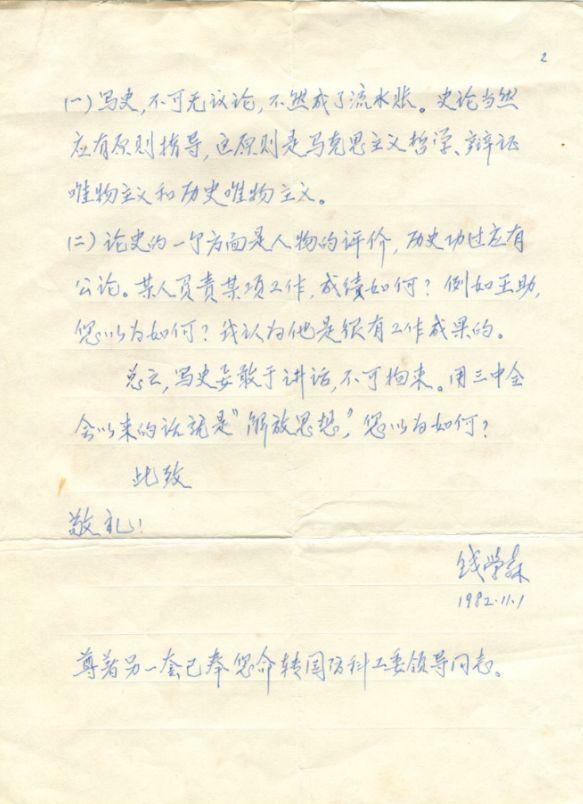 2
(一)写史,不可无议论,不然成了流水账。史论当然
应有原则指导,这原则是马克思主义哲学、辩证
唯物主义和历史唯物主义。
(二)论史的一个方面是人物的评价,历史功过应有
公论。某人负责某项工作,成绩如何?例如王助,
您以为如何?我认为他是很有工作成果的。
总之,写史要敢于讲话,不可拘束。用三中全
会以来的话就是"解放思想",您以为如何?
此致
敬礼!
钱学森
1982.11.1
尊著另一套已奉您命转国防科工委领导同志。